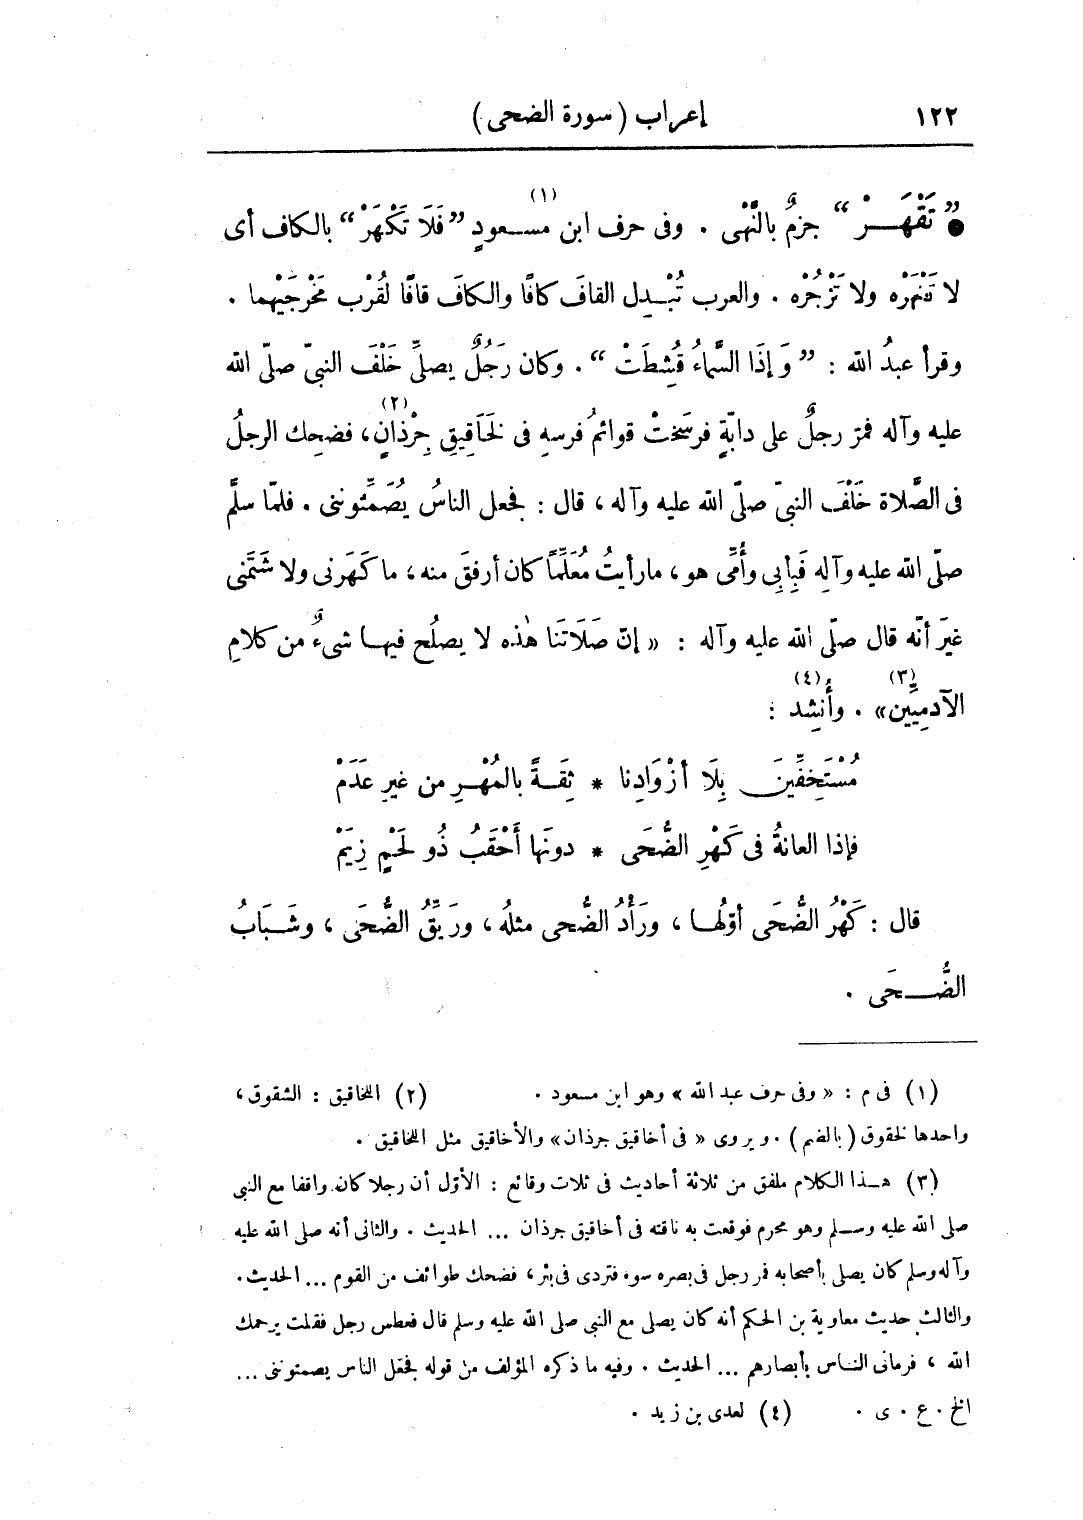 ١٢٢ إعراب (سورة الضحى)
● ”تَقْهَرْ“ جزمٌ بالنَّهْى . وفى حرف ابن مسعودٍ (١) ”فَلَا تَكْهَرْ“ بالكاف أى
لا تَنْهَرْه ولا تَزْجُرْه . والعرب تُبْدِل القافَ كافًا والكافَ قافًا لقُرْب مَخْرَجَيْهما .
وقرأ عبدُ الله : ”وَإِذَا السَّماءُ قُشِطَتْ“ . وكان رَجُلٌ يصلِّى خَلْفَ النبىّ صلّى الله
عليه وآله فمرّ رجلٌ على دابّةٍ فرسَخَتْ قوائمُ فرسهِ فى لَخَاقِيقِ جِرْذانٍ (٢)، فضحك الرجلُ
فى الصَّلاة خَلْفَ النبىّ صلّى الله عليه وآله ، قال : فجعل الناسُ يُصَمِّتُوننى . فلمّا سلَّم
صلّى الله عليه وآلهِ فَبِأبى وأُمِّى هو ، مارأيتُ مُعَلِّمًا كان أرفقَ منه ، ما كَهَرَنى ولا شَتَمَنى
غيرَ أنّه قال صلّى الله عليه وآله : « إنّ صَلَاتَنَا هٰذه لا يصلُح فيهـا شىءٌ من كلامِ
الآدمِيِّين (٣)» . وأُنْشِد (٤) :
مُسْتَخِفِّينَ بِلَا أزْوَادِنا * ثِقَةً بالمُهْرِ من غيرِ عَدَمْ
فإذا العانةُ فى كَهْرِ الضُّحَى * دونَها أَحْقَبُ ذُو لَحْمٍ زِيَمْ
قال : كَهْرُ الضُّحَى أوّلُهـا ، ورَأْدُ الضُّحى مثلُه ، ورَيِّقُ الضُّحَى ، وشَبَابُ
الضُّحَى .
(١) فى م : « وفى حرف عبد الله » وهو ابن مسعود . (٢) اللخاقيق : الشقوق ،
واحدها لخقوق (بالضم) . ويروى « فى أخاقيق جرذان » والأخاقيق مثل اللخاقيق .
(٣) هـذا الكلام ملفق من ثلاثة أحاديث فى ثلاث وقائع : الأوّل أن رجلا كان واقفا مع النبى
صلى الله عليه وسـلم وهو محرم فوقعت به ناقته فى أخاقيق جرذان ... الحديث . والثانى أنه صلى الله عليه
وآله وسلم كان يصلى بأصحابه فمر رجل فى بصره سوء فتردى فى بئر ، فضحك طوائف من القوم ... الحديث .
والثالث حديث معاوية بن الحكم أنه كان يصلى مع النبى صلى الله عليه وسلم قال فعطس رجل فقلت يرحمك
الله ، فرمانى النـاس بأبصارهم ... الحديث . وفيه ما ذكره المؤلف من قوله فجعل الناس يصمتوننى ...
الخ . ع . ى . (٤) لعدى بن زيد .